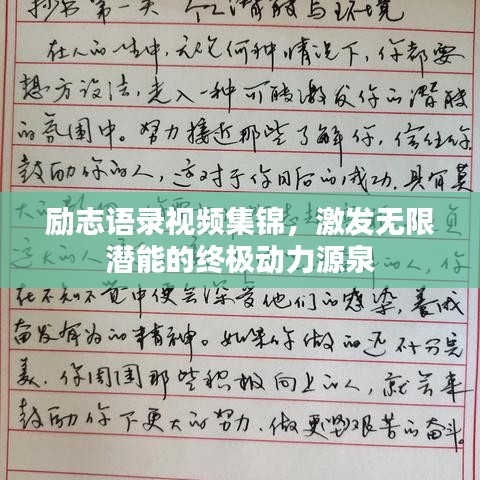 抄书第一类 个人潜能与环境
在人的一生中，无论何种情况下，你都要
想方设法，走入一种可能激发你的潜能
的氛围中。努力接近那些了解你，信任你，
鼓励你的人，这对于你日后的成功，具有莫
大的
励志语录视频集锦，激发无限
潜能的终极动力源泉
在不知不觉中便会深受他们的感染，养成
奋发有为的精神。如果你做的还不十分完
美，你周围那些积极向上的人，就会来
鼓励你下更大的努力，做更坚艰苦的奋斗。